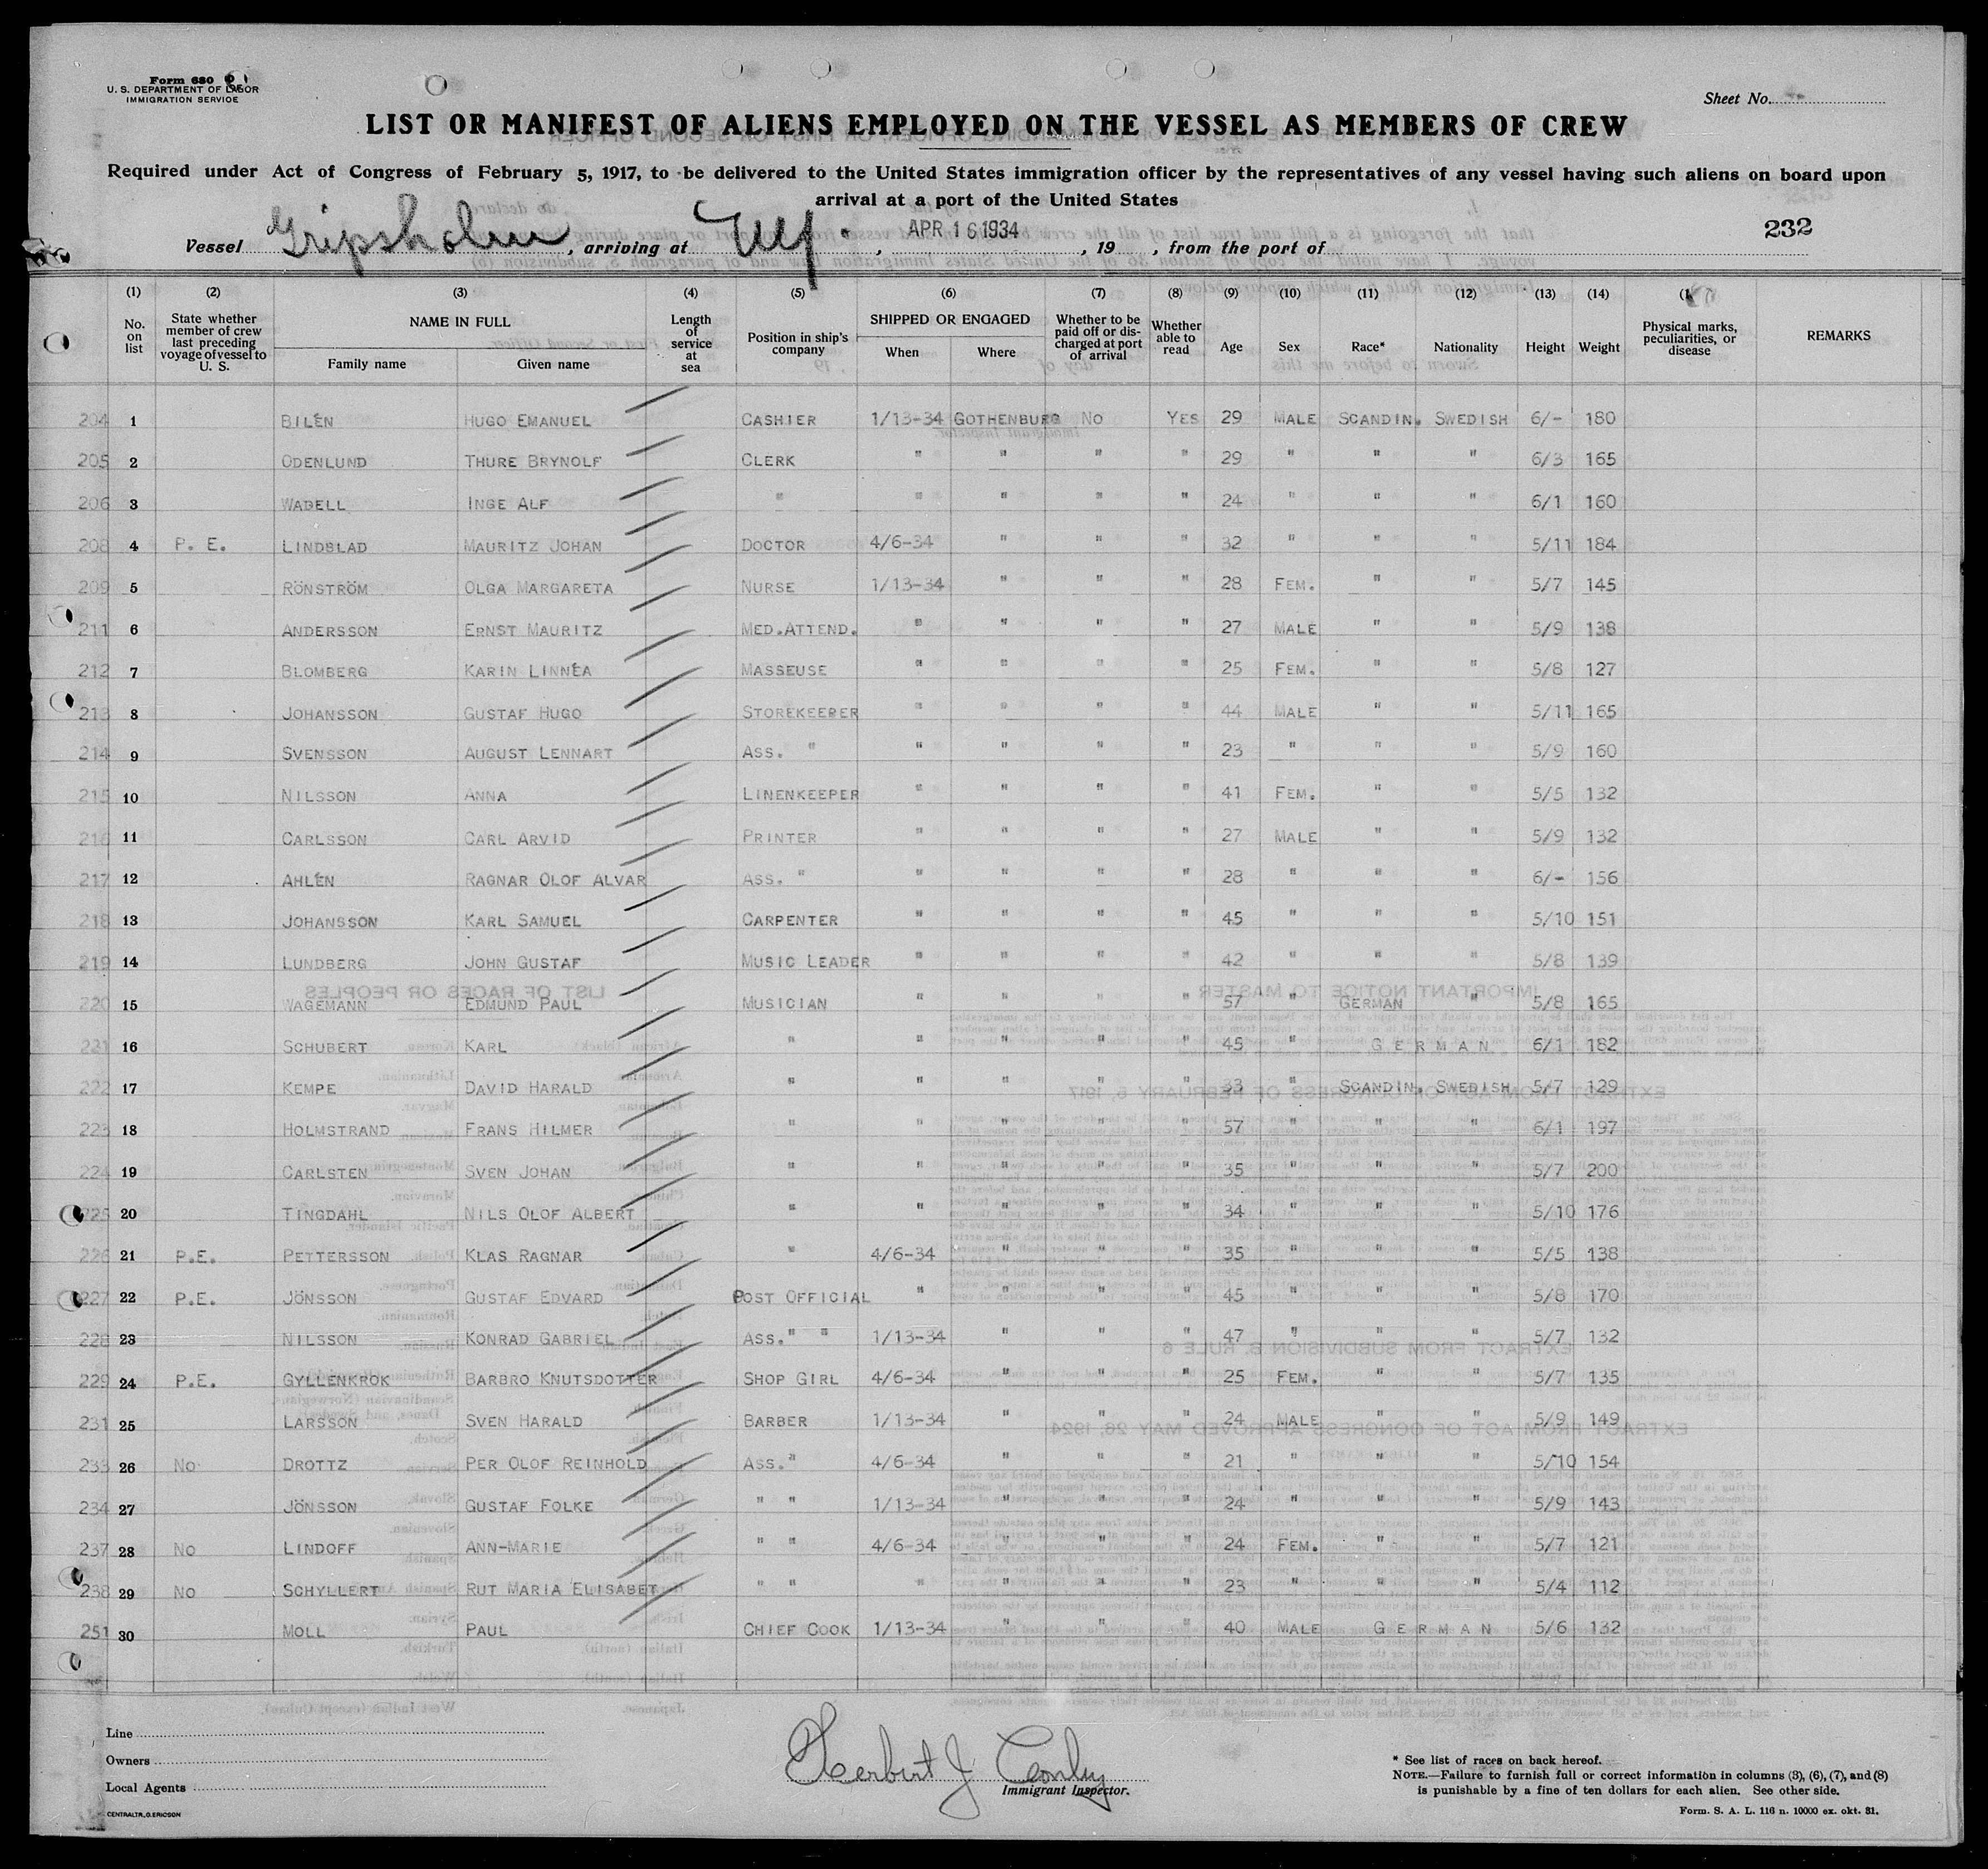 Form 680
U. S. DEPARTMENT OF LABOR
IMMIGRATION SERVICE
Sheet No.
LIST OR MANIFEST OF ALIENS EMPLOYED ON THE VESSEL AS MEMBERS OF CREW
Required under Act of Congress of February 5, 1917, to be delivered to the United States immigration officer by the representatives of any vessel having such aliens on board upon
arrival at a port of the United States
Vessel Gripsholm, arriving at NY., APR 16 1934, 19 , from the port of 232
(1) (2) (3) (4) (5) (6) (7) (8) (9) (10) (11) (12) (13) (14)
No. on list State whether member of crew last preceding voyage of vessel to U. S. NAME IN FULL Family name Given name Length of service at sea Position in ship's company SHIPPED OR ENGAGED When Where Whether to be paid off or discharged at port of arrival Whether able to read Age Sex Race* Nationality Height Weight Physical marks, peculiarities, or disease REMARKS
204 1 BILÉN HUGO EMANUEL CASHIER 1/13-34 GOTHENBURG NO YES 29 MALE SCANDIN. SWEDISH 6/- 180
205 2 ODENLUND THURE BRYNOLF CLERK " " " " 29 " " " 6/3 165
206 3 WADELL INGE ALF " " " " " 24 " " " 6/1 160
208 4 P. E. LINDBLAD MAURITZ JOHAN DOCTOR 4/6-34 " " " 32 " " " 5/11 184
209 5 RÖNSTRÖM OLGA MARGARETA NURSE 1/13-34 " " " 28 FEM. " " 5/7 145
211 6 ANDERSSON ERNST MAURITZ MED.ATTEND. " " " " 27 MALE " " 5/9 138
212 7 BLOMBERG KARIN LINNÉA MASSEUSE " " " " 25 FEM. " " 5/8 127
213 8 JOHANSSON GUSTAF HUGO STOREKEEPER " " " " 44 MALE " " 5/11 165
214 9 SVENSSON AUGUST LENNART ASS. " " " " " 23 " " " 5/9 160
215 10 NILSSON ANNA LINENKEEPER " " " " 41 FEM. " " 5/5 132
216 11 CARLSSON CARL ARVID PRINTER " " " " 27 MALE " " 5/9 132
217 12 AHLÉN RAGNAR OLOF ALVAR ASS. " " " " " 28 " " " 6/- 156
218 13 JOHANSSON KARL SAMUEL CARPENTER " " " " 45 " " " 5/10 151
219 14 LUNDBERG JOHN GUSTAF MUSIC LEADER " " " " 42 " " " 5/8 139
220 15 WAGEMANN EDMUND PAUL MUSICIAN " " " " 57 " GERMAN " 5/8 165
221 16 SCHUBERT KARL " " " " " 45 " GERMAN 6/1 182
222 17 KEMPE DAVID HARALD " " " " " 33 " SCANDIN. SWEDISH 5/7 129
223 18 HOLMSTRAND FRANS HILMER " " " " " 57 " " " 6/1 197
224 19 CARLSTEN SVEN JOHAN " " " " " 35 " " " 5/7 200
225 20 TINGDAHL NILS OLOF ALBERT " " " " " 34 " " " 5/10 176
226 21 P.E. PETTERSSON KLAS RAGNAR " 4/6-34 " " " 35 " " " 5/5 138
227 22 P.E. JÖNSSON GUSTAF EDVARD POST OFFICIAL " " " " 45 " " " 5/8 170
228 23 NILSSON KONRAD GABRIEL ASS. " " 1/13-34 " " " 47 " " " 5/7 132
229 24 P.E. GYLLENKROK BARBRO KNUTSDOTTER SHOP GIRL 4/6-34 " " " 25 FEM. " " 5/7 135
231 25 LARSSON SVEN HARALD BARBER 1/13-34 " " " 24 MALE " " 5/9 149
233 26 NO DROTTZ PER OLOF REINHOLD ASS. " 4/6-34 " " " 21 " " " 5/10 154
234 27 JÖNSSON GUSTAF FOLKE " " 1/13-34 " " " 24 " " " 5/9 143
237 28 NO LINDOFF ANN-MARIE " " 4/6-34 " " " 24 FEM. " " 5/7 121
238 29 NO SCHYLLERT RUT MARIA ELISABET " " " " " " 23 " " " 5/4 112
251 30 MOLL PAUL CHIEF COOK 1/13-34 " " " 40 MALE GERMAN 5/6 132
Line
Owners
Local Agents
CENTRALTR., G. ERICSON
Herbert J Conley
Immigrant Inspector.
* See list of races on back hereof.
NOTE.—Failure to furnish full or correct information in columns (3), (6), (7), and (8)
is punishable by a fine of ten dollars for each alien. See other side.
Form. S. A. L. 116 n. 10000 ex. okt. 31.